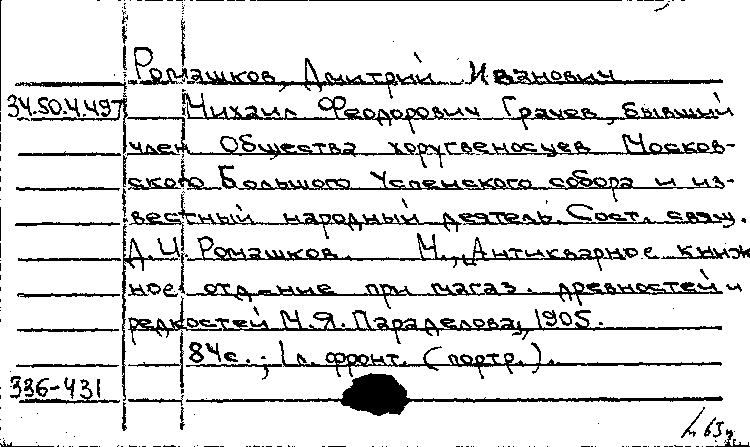 Ромашков, Дмитрий Иванович
34.50.4.497 Михаил Феодорович Грачев, бывший
член Общества хоругвеносцев Москов-
ского Большого Успенского собора и из-
вестный народный деятель. Сост. свящ.
Д.И. Ромашков. М., "Антикварное книж
ное отд-ение при магаз. древностей и
редкостей М.Я. Параделова", 1905.
84с.; 1 л. фронт. (портр.).
336-431